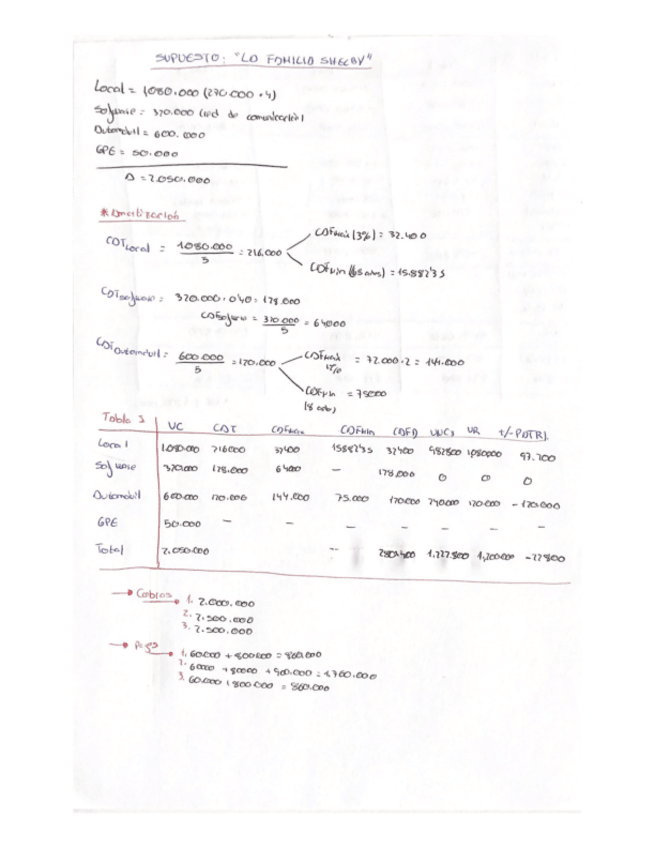 SUPUESTO: "LA FAMILIA SHELBY"
Local = 1080.000 (270.000 · 4)
Software = 320.000 (red de comunicación)
Automóvil = 600.000
GPE = 50.000
Δ = 2.050.000
* Amortización
CATLocal = 1080.000 / 5 = 216.000
CAFmáx (3%) = 32.400
CAFmín (68 años) = 15.882'35
CATsoftware = 320.000 · 0'40 = 128.000
CAFsoftware = 320.000 / 5 = 64000
CATAutomóvil = 600.000 / 5 = 120.000
CAFmáx 12% = 72.000 · 2 = 144.000
CAFmín (8 años) = 75000
Tabla 1 VC CAT CAFmáx CAFmín CAFD VNC3 VR +/- PATR).
Local 1.080.000 216000 32400 15882'35 32400 982800 1080000 97.200
Software 320.000 128.000 6400 - 128.000 0 0 0
Automóvil 600.000 120.000 144.000 75.000 120000 240000 120.000 -120.000
GPE 50.000 - - - - - - -
Total 2.050.000 -- 280400 1.222.800 1,200.000 -22800
→ Cobros 1. 2.000.000
2. 2.500.000
3. 2.500.000
→ Pagos 1. 60.000 + 800.000 = 860.000
2. 60000 + 800000 + 900.000 = 1760.000
3. 60.000 + 800.000 = 860.000